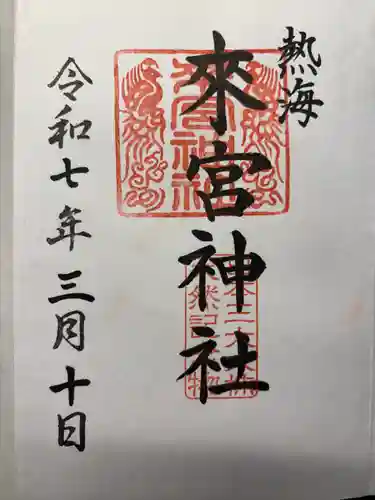 熱海
來宮神社
令和七年三月十日
來宮神社